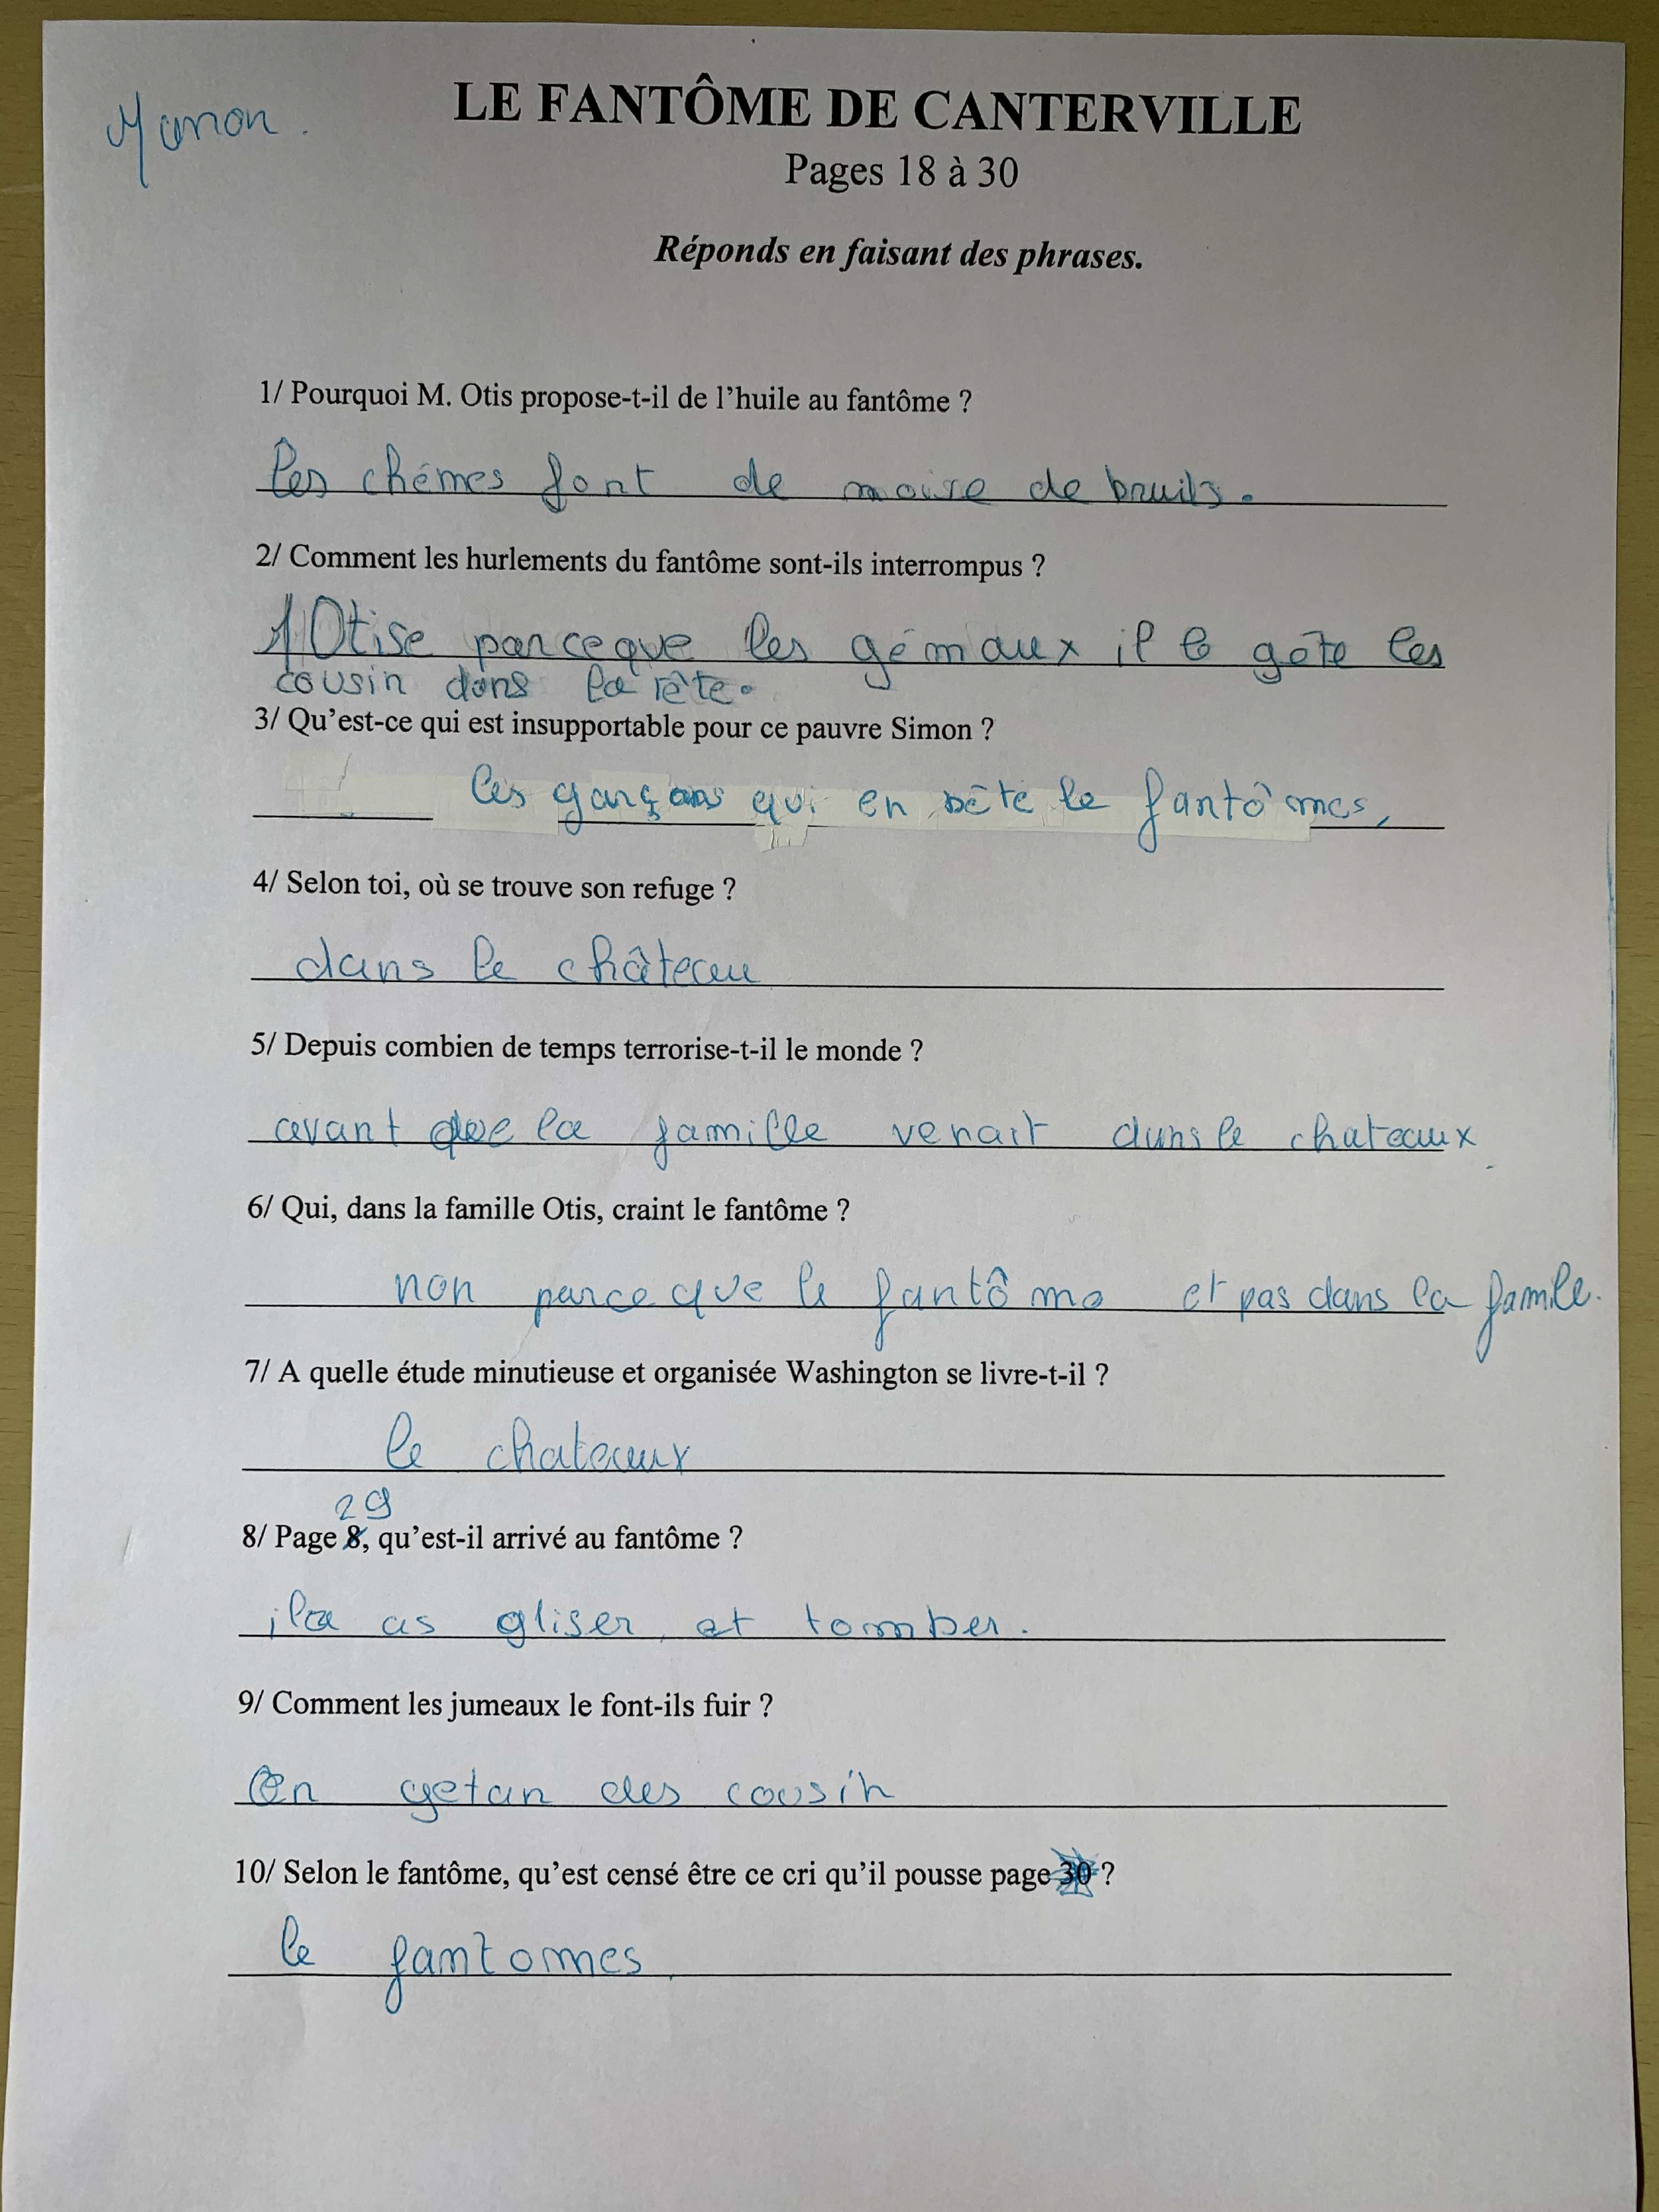 Manon.
LE FANTÔME DE CANTERVILLE
Pages 18 à 30
Réponds en faisant des phrases.
1/ Pourquoi M. Otis propose-t-il de l'huile au fantôme ?
les chémes font de moise de bruits.
2/ Comment les hurlements du fantôme sont-ils interrompus ?
Otise parceque les gémaux il le gète les
cousin dans la tête.
3/ Qu'est-ce qui est insupportable pour ce pauvre Simon ?
les garçons qui en bête le fantômes,
4/ Selon toi, où se trouve son refuge ?
dans le château
5/ Depuis combien de temps terrorise-t-il le monde ?
avant que la famille venait dans le chateaux.
6/ Qui, dans la famille Otis, craint le fantôme ?
non parce que le fantôme et pas dans la famile.
7/ A quelle étude minutieuse et organisée Washington se livre-t-il ?
le chateaux
29
8/ Page 8, qu'est-il arrivé au fantôme ?
ila as gliser et tomber.
9/ Comment les jumeaux le font-ils fuir ?
En getan des cousin
10/ Selon le fantôme, qu'est censé être ce cri qu'il pousse page 30 ?
le fantomes